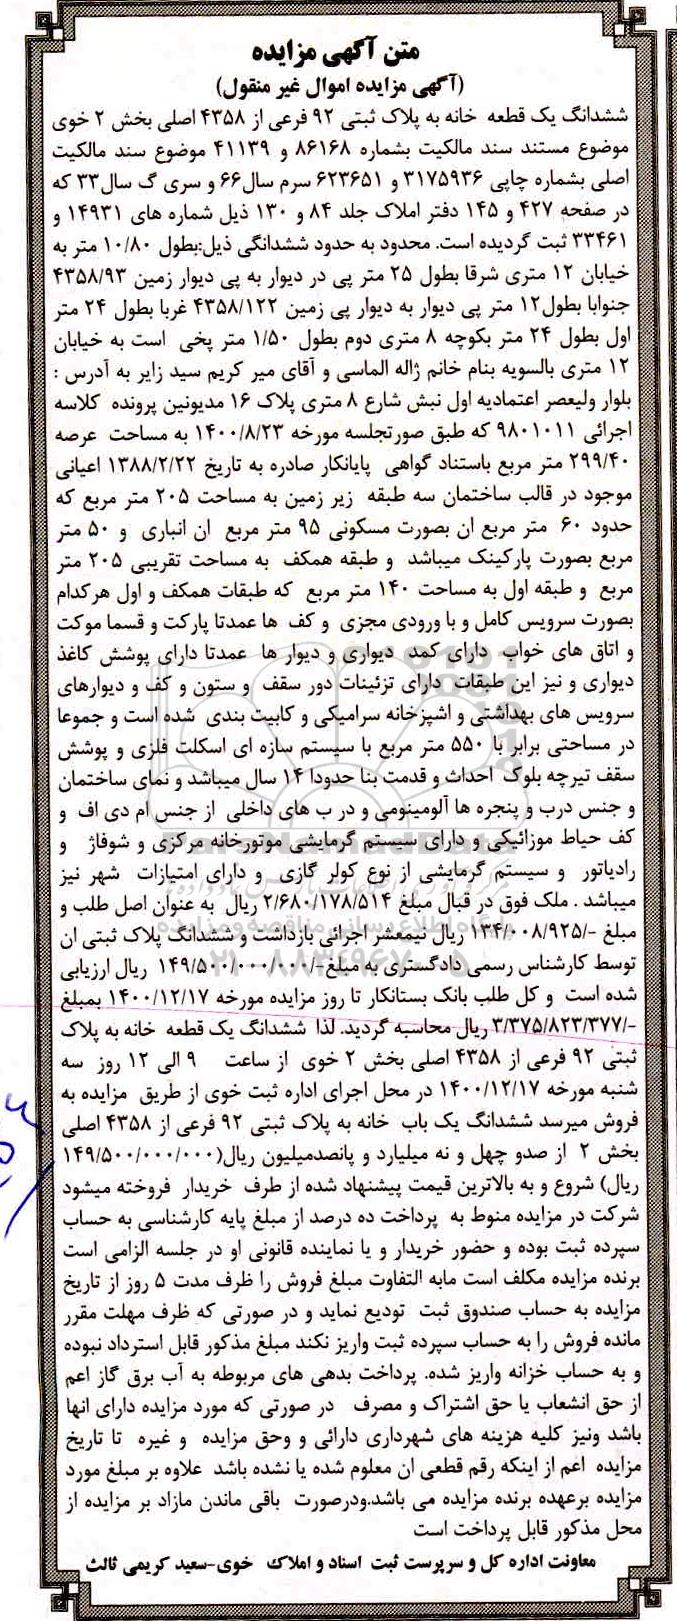 متن آگهی مزایده
(آگهی مزایده اموال غیر منقول)
ششدانگ یک قطعه خانه به پلاک ثبتی ۹۲ فرعی از ۴۳۵۸ اصلی بخش ۲ خوی
موضوع مستند سند مالکیت بشماره ۸۶۱۶۸ و ۴۱۱۳۹ موضوع سند مالکیت
اصلی بشماره چاپی ۳۱۷۵۹۳۶ و ۶۲۳۶۵۱ سرم سال۶۶ و سری گ سال۳۳ که
در صفحه ۴۲۷ و ۱۴۵ دفتر املاک جلد ۸۴ و ۱۳۰ ذیل شماره های ۱۴۹۳۱ و
۳۳۴۶۱ ثبت گردیده است. محدود به حدود ششدانگی ذیل:بطول ۱۰/۸۰ متر به
خیابان ۱۲ متری شرقا بطول ۲۵ متر پی در دیوار به پی دیوار زمین ۴۳۵۸/۹۳
جنوابا بطول۱۲ متر پی دیوار به دیوار پی زمین ۴۳۵۸/۱۲۲ غربا بطول ۲۴ متر
اول بطول ۲۴ متر بکوچه ۸ متری دوم بطول ۱/۵۰ متر پخی است به خیابان
۱۲ متری بالسویه بنام خانم ژاله الماسی و آقای میر کریم سید زایر به آدرس :
بلوار ولیعصر اعتمادیه اول نبش شارع ۸ متری پلاک ۱۶ مدیونین پرونده کلاسه
اجرائی ۹۸۰۱۰۱۱ که طبق صورتجلسه مورخه ۱۴۰۰/۸/۲۳ به مساحت عرصه
۲۹۹/۴۰ متر مربع باستناد گواهی پایانکار صادره به تاریخ ۱۳۸۸/۲/۲۲ اعیانی
موجود در قالب ساختمان سه طبقه زیر زمین به مساحت ۲۰۵ متر مربع که
حدود ۶۰ متر مربع ان بصورت مسکونی ۹۵ متر مربع ان انباری و ۵۰ متر
مربع بصورت پارکینک میباشد و طبقه همکف به مساحت تقریبی ۲۰۵ متر
مربع و طبقه اول به مساحت ۱۴۰ متر مربع که طبقات همکف و اول هرکدام
بصورت سرویس کامل و با ورودی مجزی و کف ها عمدتا پارکت و قسما موکت
و اتاق های خواب دارای کمد دیواری و دیوار ها عمدتا دارای پوشش کاغذ
دیواری و نیز این طبقات دارای تزئینات دور سقف و ستون و کف و دیوارهای
سرویس های بهداشتی و اشپزخانه سرامیکی و کابیت بندی شده است و جموعا
در مساحتی برابر با ۵۵۰ متر مربع با سیستم سازه ای اسکلت فلزی و پوشش
سقف تیرچه بلوک احداث و قدمت بنا حدودا ۱۴ سال میباشد و نمای ساختمان
و جنس درب و پنجره ها آلومینومی و در ب های داخلی از جنس ام دی اف و
کف حیاط موزائیکی و دارای سیستم گرمایشی موتورخانه مرکزی و شوفاژ و
رادیاتور و سیستم گرمایشی از نوع کولر گازی و دارای امتیازات شهر نیز
میباشد . ملک فوق در قبال مبلغ ۲/۶۸۰/۱۷۸/۵۱۴ ریال به عنوان اصل طلب و
مبلغ -/۱۳۴/۰۰۸/۹۲۵ ریال نیمعشر اجرائی بازداشت و ششدانگ پلاک ثبتی ان
توسط کارشناس رسمی دادگستری به مبلغ-/۱۴۹/۵۰۰/۰۰۰/۰۰۰ ریال ارزیابی
شده است و کل طلب بانک بستانکار تا روز مزایده مورخه ۱۴۰۰/۱۲/۱۷ بمبلغ
-/۳/۳۷۵/۸۲۳/۳۷۷ ریال محاسبه گردید. لذا ششدانگ یک قطعه خانه به پلاک
ثبتی ۹۲ فرعی از ۴۳۵۸ اصلی بخش ۲ خوی از ساعت ۹ الی ۱۲ روز سه
شنبه مورخه ۱۴۰۰/۱۲/۱۷ در محل اجرای اداره ثبت خوی از طریق مزایده به
فروش میرسد ششدانگ یک باب خانه به پلاک ثبتی ۹۲ فرعی از ۴۳۵۸ اصلی
بخش ۲ از صدو چهل و نه میلیارد و پانصدمیلیون ریال(۱۴۹/۵۰۰/۰۰۰/۰۰۰
ریال) شروع و به بالاترین قیمت پیشنهاد شده از طرف خریدار فروخته میشود
شرکت در مزایده منوط به پرداخت ده درصد از مبلغ پایه کارشناسی به حساب
سپرده ثبت بوده و حضور خریدار و یا نماینده قانونی او در جلسه الزامی است
برنده مزایده مکلف است مابه التفاوت مبلغ فروش را ظرف مدت ۵ روز از تاریخ
مزایده به حساب صندوق ثبت تودیع نماید و در صورتی که ظرف مهلت مقرر
مانده فروش را به حساب سپرده ثبت واریز نکند مبلغ مذکور قابل استرداد نبوده
و به حساب خزانه واریز شده. پرداخت بدهی های مربوطه به آب برق گاز اعم
از حق انشعاب یا حق اشتراک و مصرف در صورتی که مورد مزایده دارای انها
باشد ونیز کلیه هزینه های شهرداری دارائی و وحق مزایده و غیره تا تاریخ
مزایده اعم از اینکه رقم قطعی ان معلوم شده یا نشده باشد علاوه بر مبلغ مورد
مزایده برعهده برنده مزایده می باشد.ودرصورت باقی ماندن مازاد بر مزایده از
محل مذکور قابل پرداخت است
معاونت اداره کل و سرپرست ثبت اسناد و املاک خوی-سعید کریمی ثالث